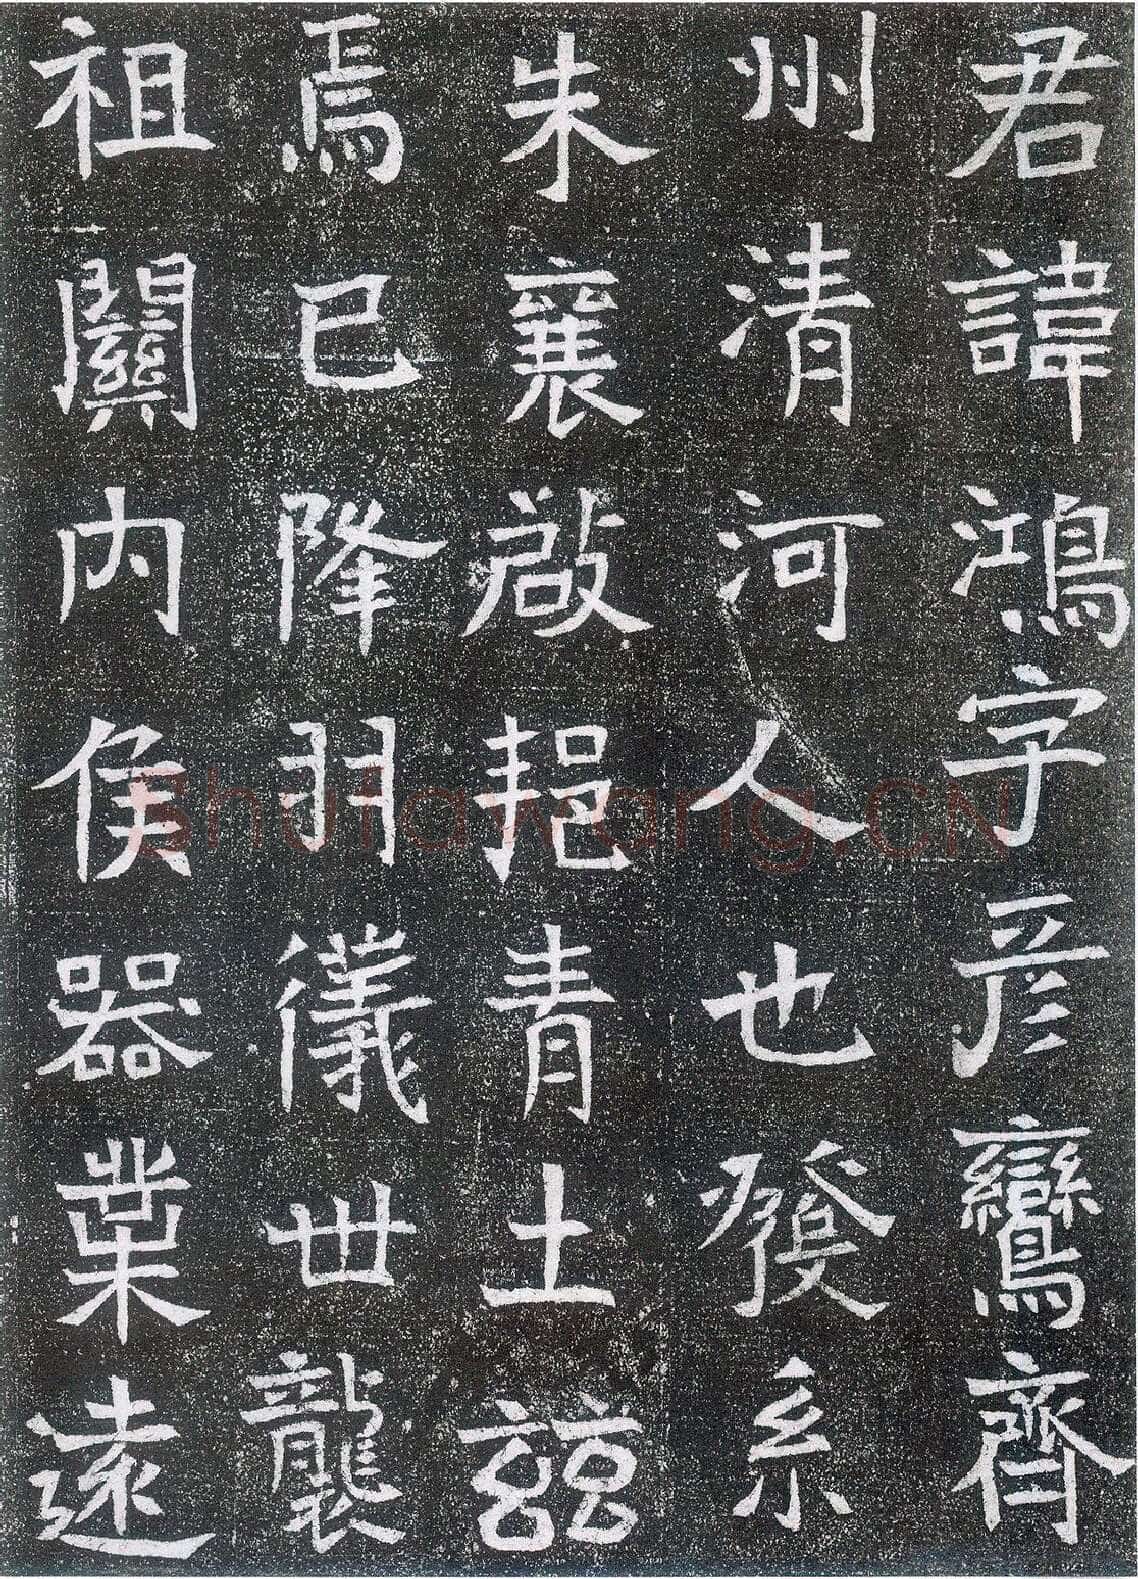 君諱鴻字彦鸞齊
州清河人也發系
朱襄啟挹青土兹
焉已降羽儀世襲
祖關内侯器業遠
Shufawang.CN